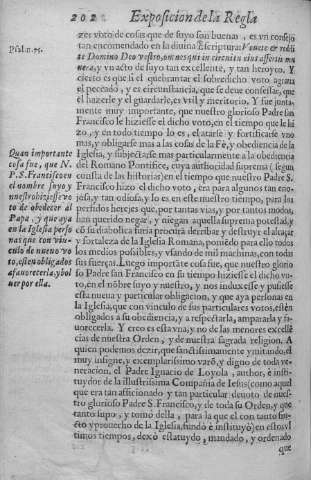 202 Exposicion de la Regla
zes voto de cosas que de suyo son buenas, es vn consejo
tan encomendado en la diuina Escritura: Vouete & reddi
Psal. n. 75.
te Domino Deo vestro, omnes qui in circuitu eius affertis mu
nera, y vn acto de suyo tan excelente, y tan heroyco. Y
cierto es que si el quebrantar el sobredicho voto agraua
el peccado, y es circunstancia, que se deue confessar, que
el hazerle y el guardarle, es vtil y meritorio. Y fue junta-
mente muy importante, que nuestro glorioso Padre san
Francisco le hiziesse el dicho voto, en el tiempo que le hi
zo, y en todo tiempo lo es, el atarse y fortificarse vno
mas, y obligarse mas a las cosas de la Fè, y obediencia de la
Iglesia, y subjectarse mas particularmente a la obediencia
del Romano Pontifice, cuya authoridad suprema (segun
consta de las historias) en el tiempo que nuestro Padre S.
Francisco hizo el dicho voto, era para algunos tan eno-
josa, y tan odiosa, y lo es en este nuestro tiempo, para los
perfidos hereges, que por tantas vias, y por tantos modos
han querido negar, y niegan aquella suprema potestad, y
cõ su diabolica furia procurã derribar y destruyr el alcaçar
y fortaleza de la Iglesia Romana, poniẽdo para ello todos
los medios possibles, y vsando de mil machinas, con todas
sus fuerças. Luego importãte cosa fue, que nuestro glorio
so Padre san Francisco en su tiempo hiziesse el dicho vo-
to, en el nõbre suyo y nuestro, y nos induxesse y pusiesse
esta nueua y particular obligacion, y que aya personas en
la Iglesia, que con vinculo de sus particulares votos, estẽn
obligados a su obediencia, y a respectarla, ampararla y fa-
uorecerla. Y creo es esta vna, y no de las menores excellẽ
cias de nuestra Orden, y de nuestra sagrada religion. A
quien podemos dezir, que sanctissimamente ymitando, el
muy insigne, y exemplarissimo varõ, y digno de toda ve-
neracion, el Padre Ignacio de Loyola, author, è insti-
tuydor de la illustrissima Compañia de Iesus (como aquel
que era tan afficionado y tan particular deuoto de nues-
tro glorioso Padre S. Francisco, y de toda su Orden, y que
tanto supo, y tomò della, para lo que el con tanto fruc-
cto y prouecho de la Iglesia, fundò è instituyò) en estos vl
timos tiempos, dexò estatuydo, mandado, y ordenado
que
Quan importante
cosa fue, que N.
P. S. Francisco en
el nombre suyo y
nuestro hiziesse vo
to de obedecer al
Papa, y que aya
en la Iglesia perso
nas que con vin-
culo de nueuo vo
to, esten obligados
a fauorecerla, y bol
uer por ella.